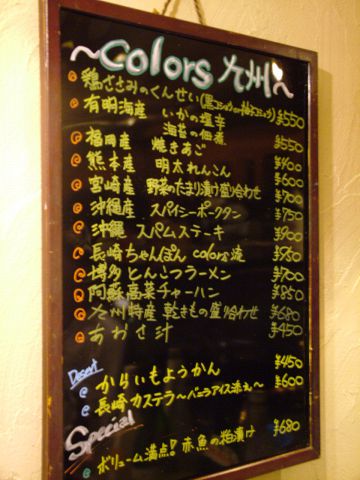 ~Colors 九州~
鶏ささみのくんせい(黒コショウor柚子コショウ) ¥550
有明海産 いかの塩辛
海苔の佃煮 ¥550
福岡産 焼きあご ¥400
熊本産 明太れんこん ¥600
宮崎産 野菜のたまり漬け盛り合わせ ¥700
沖縄産 スパイシーポークタン ¥750
沖縄 スパムステーキ ¥900
長崎ちゃんぽん colors流 ¥980
博多とんこつラーメン ¥700
阿蘇高菜チャーハン ¥850
九州特産 乾きもの盛り合わせ ¥680
あおさ汁 ¥450
Desert
からいもようかん ¥450
長崎カステラ~バニラアイス添え~ ¥600
Special
ボリューム満点!赤魚の粕漬け ¥680